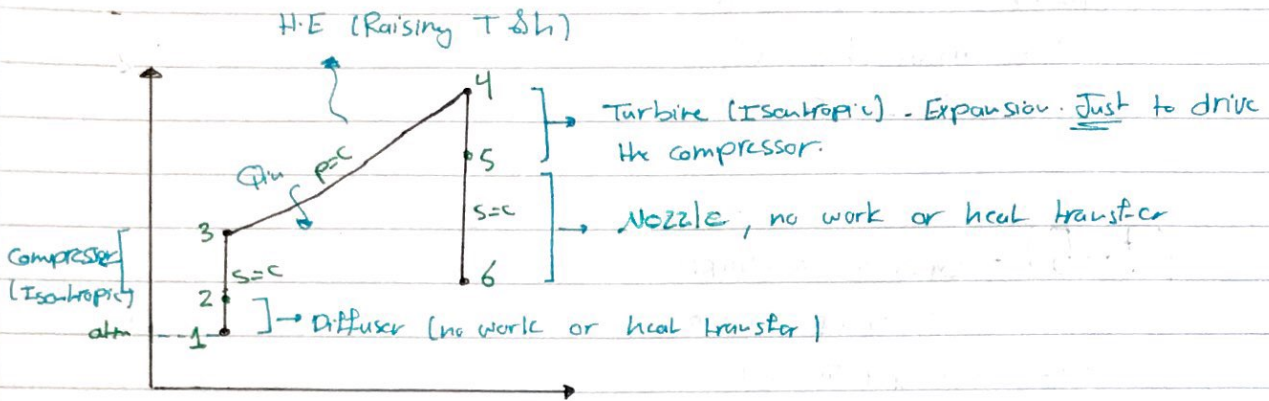 H.E (Raising T & h)
4
Turbine (Isentropic) - Expansion. Just to drive
the compressor.
5
Qin
P=C
S=C
Nozzle, no work or heat transfer
3
Compressor
(Isentropic)
S=C
2
6
Diffuser (no work or heat transfer)
atm
1